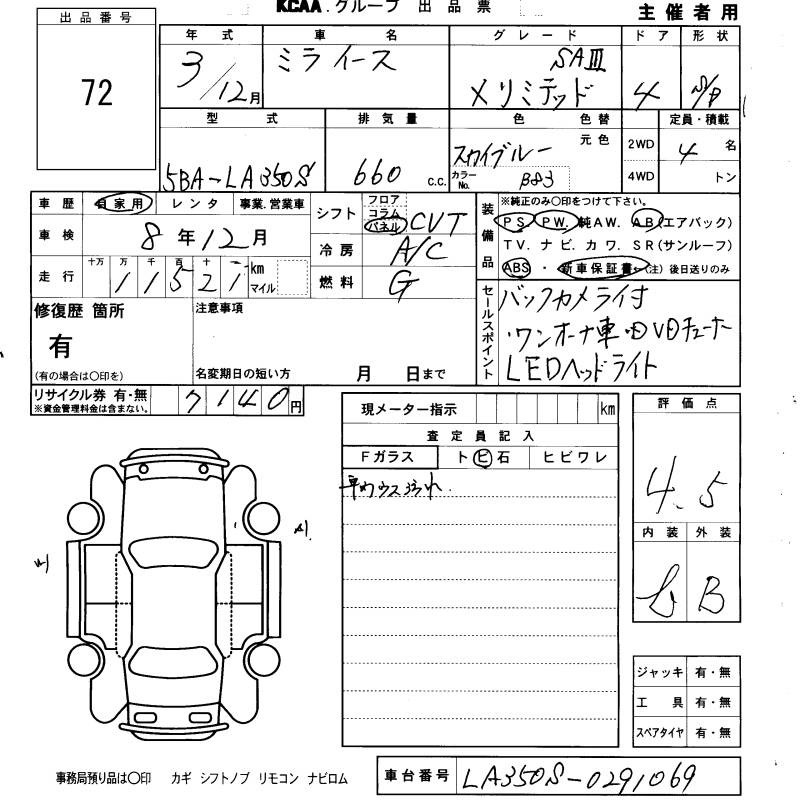 KCAA.グループ 出品票
主催者用
出品番号
72
年式 車名 グレード ドア 形状
3/12月 ミライース SAⅢ メリミテッド 4
型式 排気量 色 色替 定員・積載
元色
5BA-LA350S 660 c.c. スカイブルー
カラーNo. B83
2WD 4名
4WD トン
車歴 自家用 レンタ 事業.営業車
車検 8年12月
走行 十万 万 千 百 十 一
11521 km マイル
シフト フロア コラム パネル CVT
冷房 A/C
燃料 G
装備品
※純正のみ〇印をつけて下さい。
PS. PW. 純AW. AB(エアバック)
TV. ナビ. カワ. SR(サンルーフ)
ABS・新車保証書←(注)後日送りのみ
修復歴 箇所
有
(有の場合は〇印を)
注意事項
名変期日の短い方 月 日まで
セールスポイント
バックカメラ付
・ワンオーナ車・DVDチューナー
LEDヘッドライト
リサイクル券 有・無 7140円
※資金管理料金は含まない。
現メーター指示 km
査定員記入
Fガラス トビ石 ヒビワレ
評価点
4.5
内装 外装
B
ジャッキ 有・無
工具 有・無
スペアタイヤ 有・無
事務局預り品は〇印 カギ シフトノブ リモコン ナビロム
車台番号 LA350S-0291069